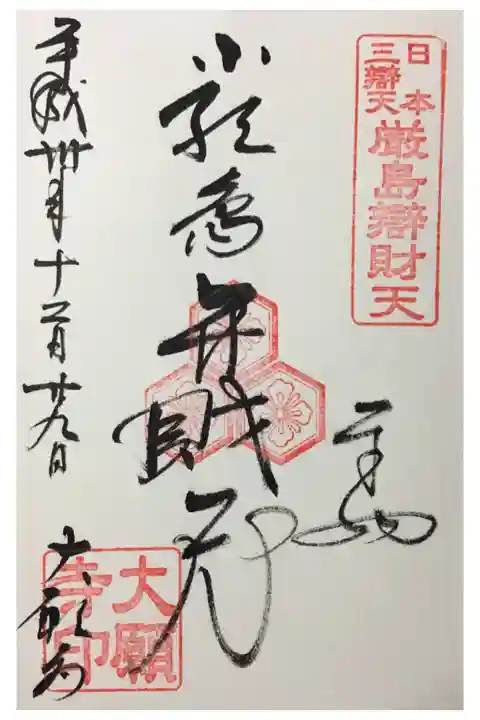 日本三辯天
厳島辯財天
厳島弁財天
平成卅年十二月廿九日
大願寺
大願寺印